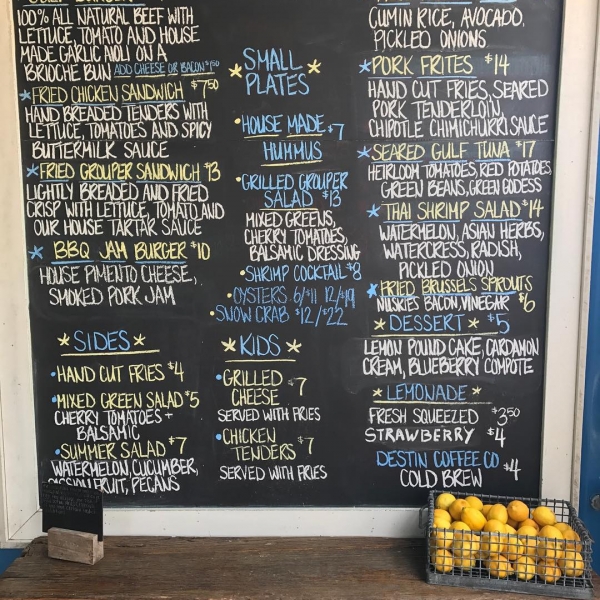 100% ALL NATURAL BEEF WITH
LETTUCE, TOMATO AND HOUSE
MADE GARLIC AIOLI ON A
BRIOCHE BUN ADD CHEESE OR BACON $1.50
FRIED CHICKEN SANDWICH $7.50
HAND BREADED TENDERS WITH
LETTUCE, TOMATOES AND SPICY
BUTTERMILK SAUCE
FRIED GROUPER SANDWICH $13
LIGHTLY BREADED AND FRIED
CRISP WITH LETTUCE, TOMATO, AND
OUR HOUSE TARTAR SAUCE
BBQ JAM BURGER $10
HOUSE PIMENTO CHEESE,
SMOKED PORK JAM
SIDES
HAND CUT FRIES $4
MIXED GREEN SALAD $5
CHERRY TOMATOES +
BALSAMIC
SUMMER SALAD $7
WATERMELON, CUCUMBER,
PASSION FRUIT, PECANS
SMALL
PLATES
HOUSE MADE $7
HUMMUS
GRILLED GROUPER
SALAD $13
MIXED GREENS,
CHERRY TOMATOES,
BALSAMIC DRESSING
SHRIMP COCKTAIL $8
OYSTERS 6/$11 12/$19
SNOW CRAB $12/$22
KIDS
GRILLED
CHEESE $7
SERVED WITH FRIES
CHICKEN
TENDERS $7
SERVED WITH FRIES
CUMIN RICE, AVOCADO,
PICKLED ONIONS
PORK FRITES $14
HAND CUT FRIES, SEARED
PORK TENDERLOIN,
CHIPOTLE CHIMICHURRI SAUCE
SEARED GULF TUNA $17
HEIRLOOM TOMATOES, RED POTATOES,
GREEN BEANS, GREEN GODESS
THAI SHRIMP SALAD $14
WATERMELON, ASIAN HERBS,
WATERCRESS, RADISH,
PICKLED ONION
FRIED BRUSSELS SPROUTS
NUSKIES BACON, VINEGAR $6
DESSERT $5
LEMON POUND CAKE, CARDAMON
CREAM, BLUEBERRY COMPOTE
LEMONADE
FRESH SQUEEZED $3.50
STRAWBERRY $4
DESTIN COFFEE CO $4
COLD BREW